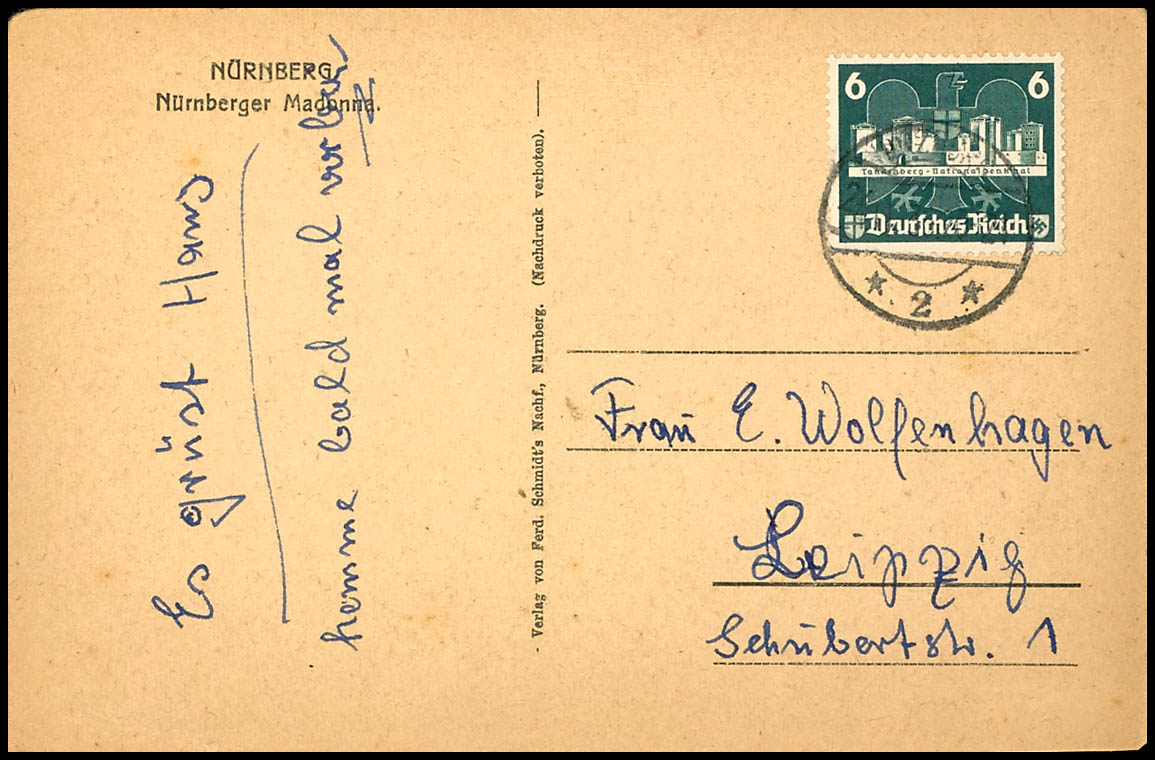 NÜRNBERG
Nürnberger Madonna.
Es grüst Hans
komme bald mal vorbei
- Verlag von Ferd. Schmidt's Nachf., Nürnberg. (Nachdruck verboten).
6 6
Tannenberg-Nationaldenkmal
Deutsches Reich
* 2 *
Frau E. Wolfenhagen
Leipzig
Schubertstr. 1